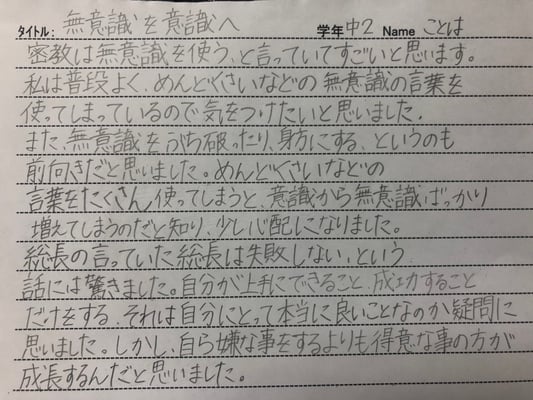 タイトル: 無意識を意識へ 学年 中2 Name ことは
密教は無意識を使う、と言っていてすごいと思います。
私は普段よく、めんどくさいなどの無意識の言葉を
使ってしまっているので気をつけたいと思いました。
また、無意識をぶち破ったり、身方にする、というのも
前向きだと思いました。めんどくさいなどの
言葉をたくさん使ってしまうと、意識から無意識ばっかり
増えてしまうのだと知り、少し心配になりました。
総長の言っていた総長は失敗しない、という
話には驚きました。自分が上手にできること、成功すること
だけをする、それは自分にとって本当に良いことなのか疑問に
思いました。しかし、自ら嫌な事をするよりも得意な事の方が
成長するんだと思いました。